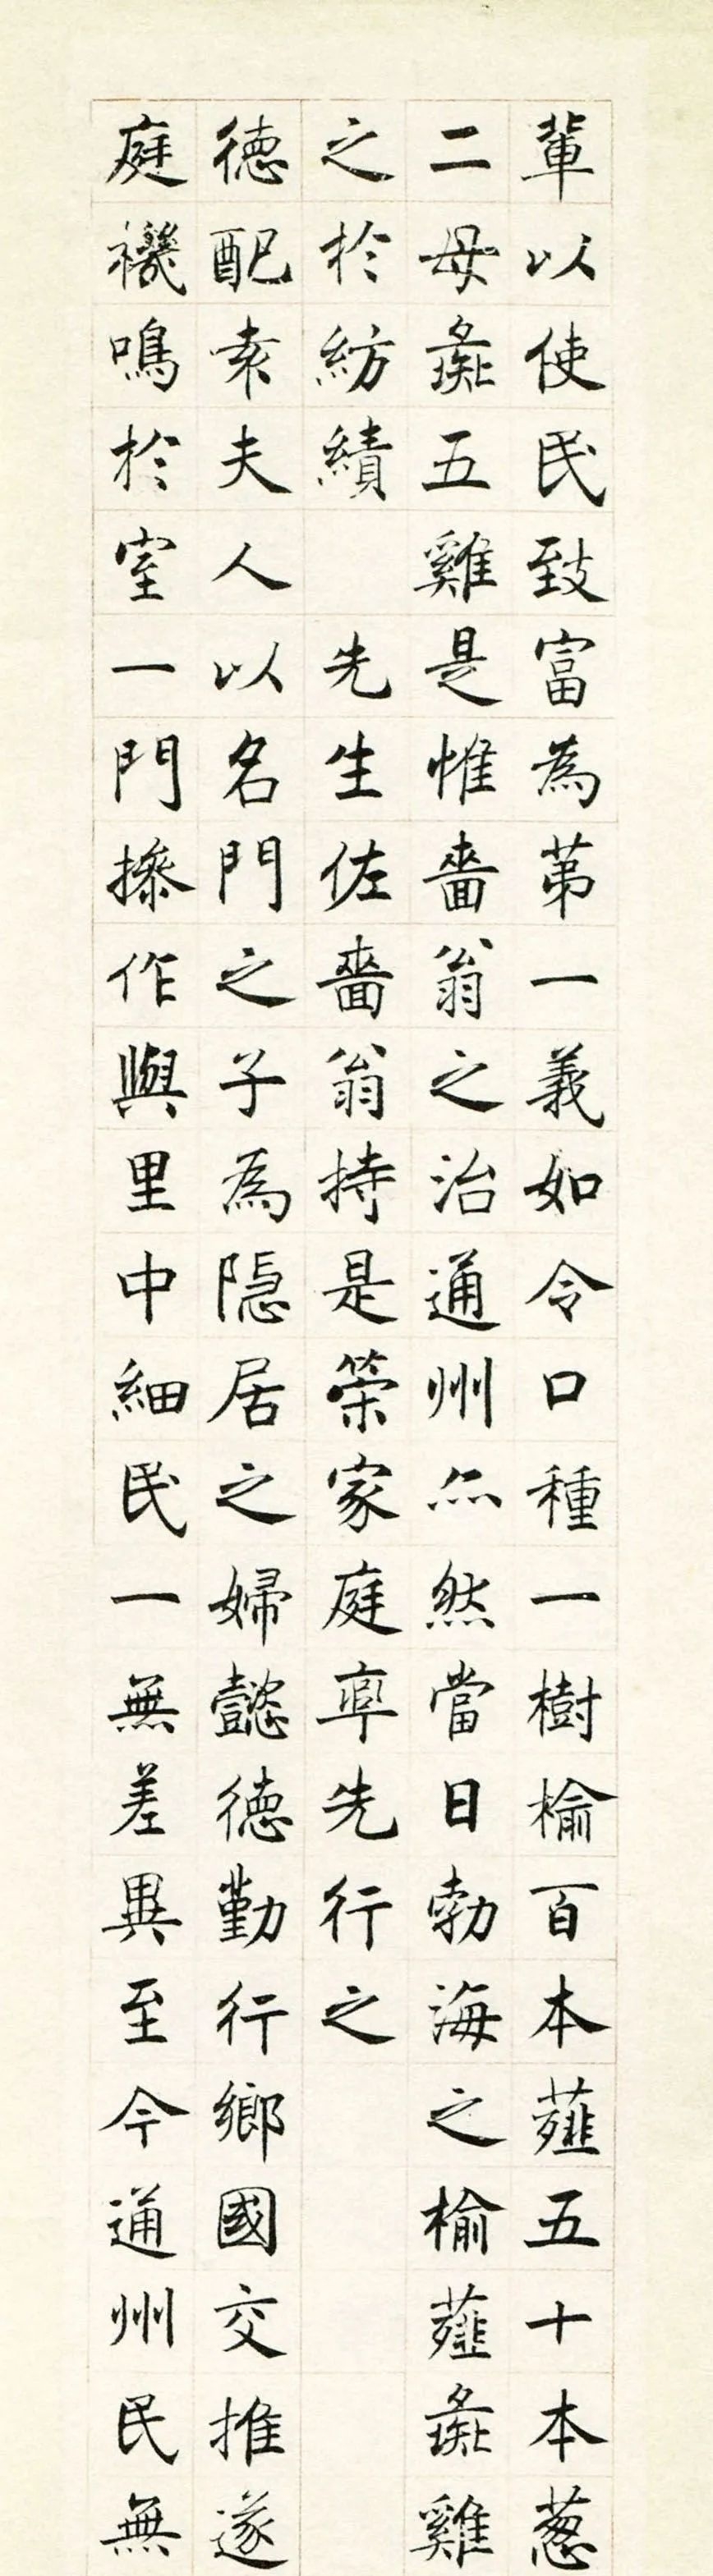 輩以使民致富為第一義如令口種一樹榆百本薤五十本葱
二母彘五雞是惟嗇翁之治通州亦然當日勃海之榆薤彘雞
之於紡績 先生佐嗇翁持是榮家庭率先行之
德配袁夫人以名門之子為隱居之婦懿德勤行鄉國交推遂
庭機鳴於室一門操作與里中細民一無差異至今通州民無